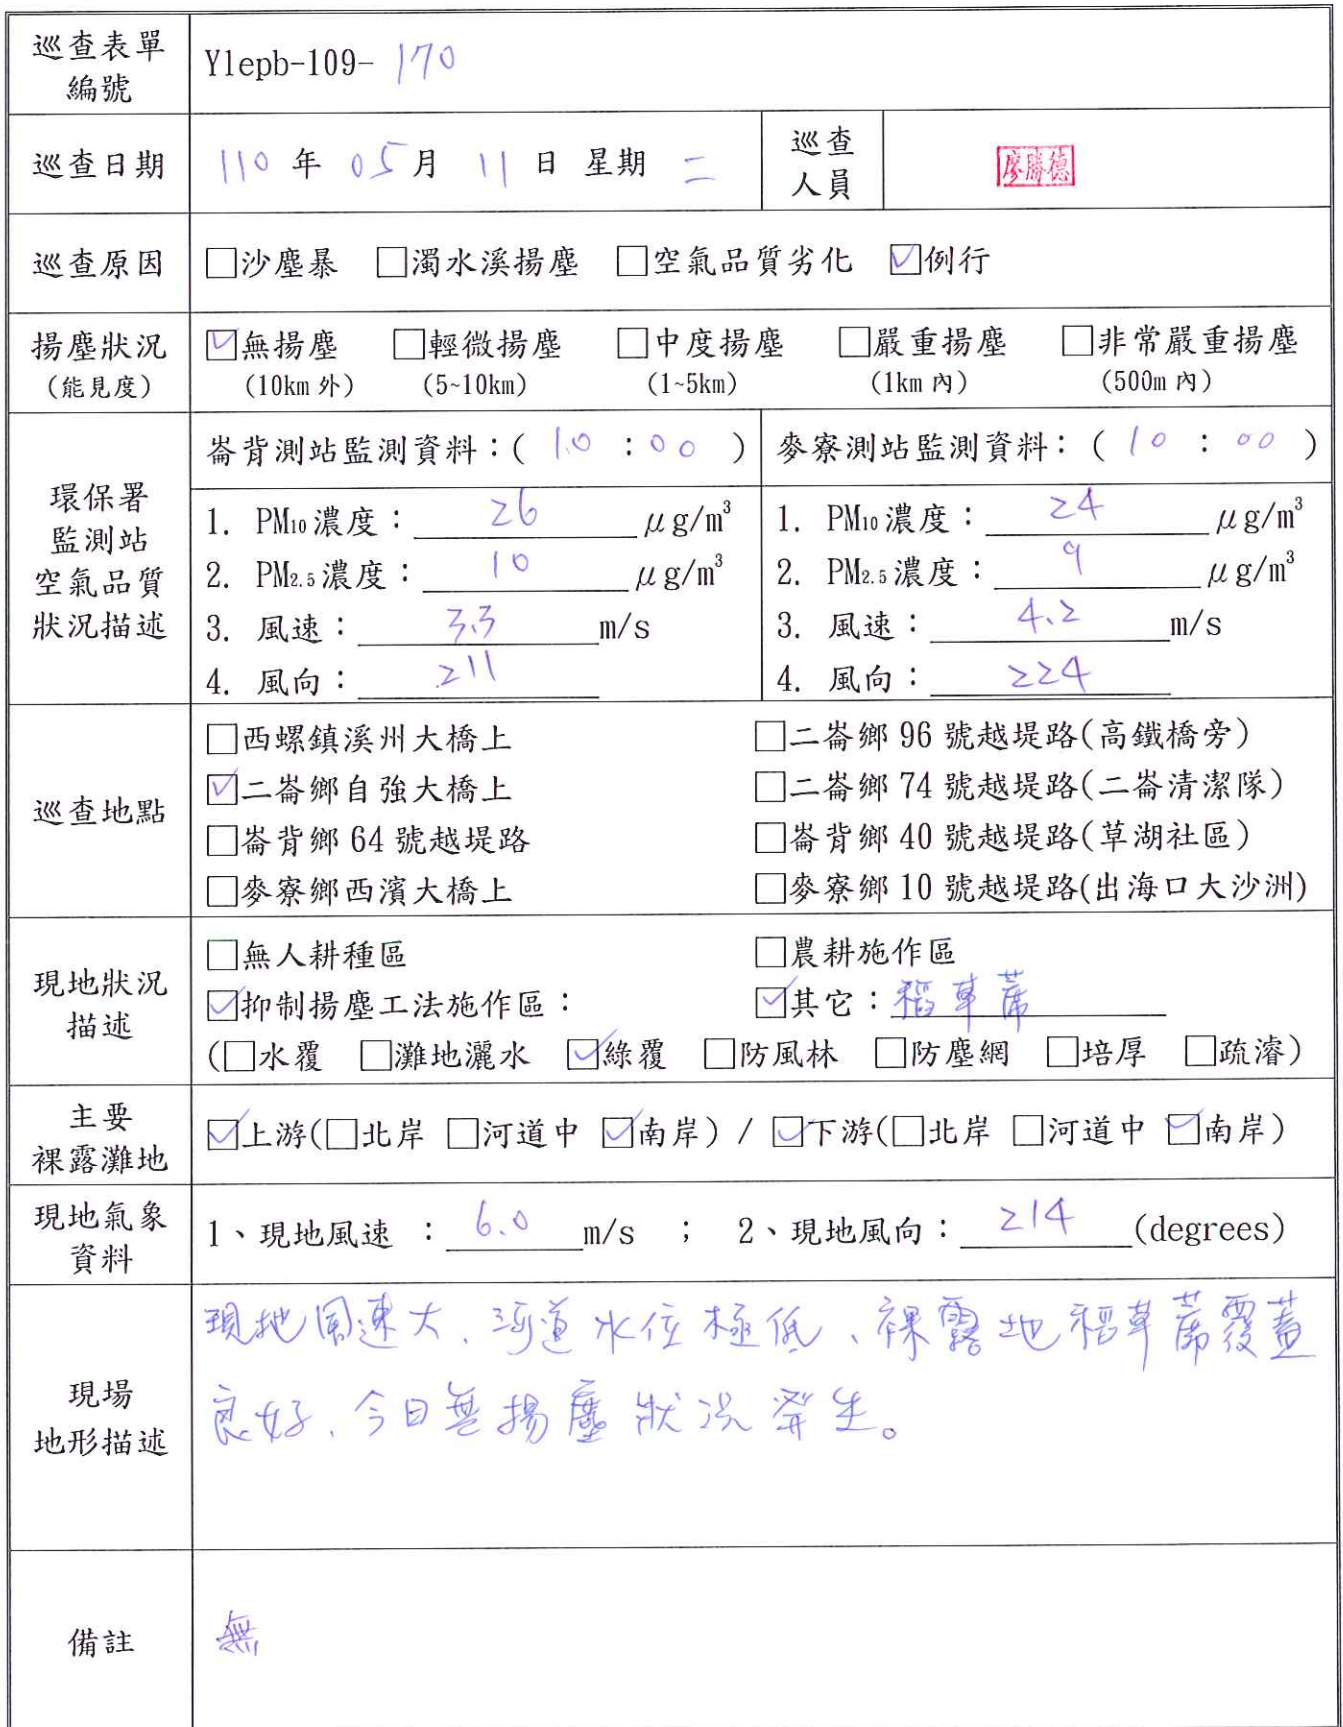 巡查表單
編號
Ylepb-109-170
巡查日期
110 年 05 月 11 日 星期 二
巡查
人員
廖勝德
巡查原因
□沙塵暴 □濁水溪揚塵 □空氣品質劣化 ☑例行
揚塵狀況
(能見度)
☑無揚塵 □輕微揚塵 □中度揚塵 □嚴重揚塵 □非常嚴重揚塵
(10km 外) (5~10km) (1~5km) (1km 內) (500m 內)
環保署
監測站
空氣品質
狀況描述
崙背測站監測資料：( 10 : 00 )
1. PM10濃度：26 μg/m³
2. PM2.5濃度：10 μg/m³
3. 風速：3.3 m/s
4. 風向：211
麥寮測站監測資料：( 10 : 00 )
1. PM10濃度：24 μg/m³
2. PM2.5濃度：9 μg/m³
3. 風速：4.2 m/s
4. 風向：224
巡查地點
□西螺鎮溪州大橋上 □二崙鄉 96 號越堤路(高鐵橋旁)
☑二崙鄉自強大橋上 □二崙鄉 74 號越堤路(二崙清潔隊)
□崙背鄉 64 號越堤路 □崙背鄉 40 號越堤路(草湖社區)
□麥寮鄉西濱大橋上 □麥寮鄉 10 號越堤路(出海口大沙洲)
現地狀況
描述
□無人耕種區 □農耕施作區
☑抑制揚塵工法施作區： ☑其它：稻草蓆
(□水覆 □灘地灑水 ☑綠覆 □防風林 □防塵網 □培厚 □疏濬)
主要
裸露灘地
☑上游(□北岸 □河道中 ☑南岸) / ☑下游(□北岸 □河道中 ☑南岸)
現地氣象
資料
1、現地風速 ：6.0 m/s ； 2、現地風向：214 (degrees)
現場
地形描述
現地風速大、河道水位極低、裸露地稻草蓆覆蓋
良好、今日無揚塵狀況發生。
備註
無